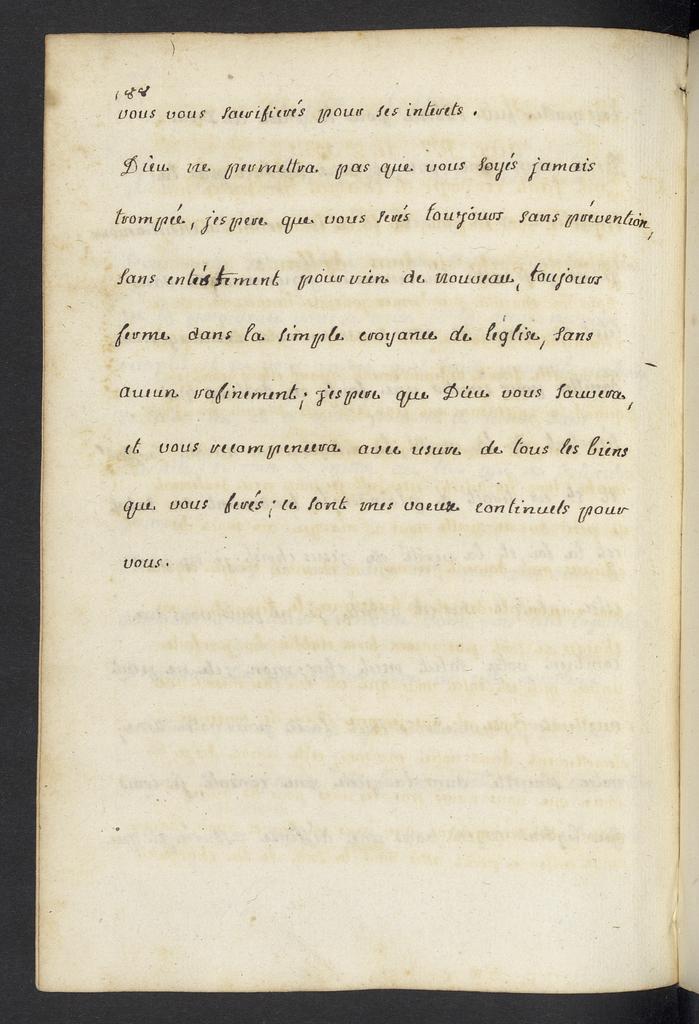 188
vous vous sacrifierés pour ses interets.
Dieu ne permettra pas que vous soyés jamais
trompée, jespere que vous serés toujours sans prévention,
sans entêstement pour rien de nouveau, toujours
ferme dans la simple croyance de léglise, sans
aucun rafinement; jespere que Dieu vous sauvera,
et vous recompencera avec usure de tous les biens
que vous ferés; ce sont mes voeux continuels pour
vous.